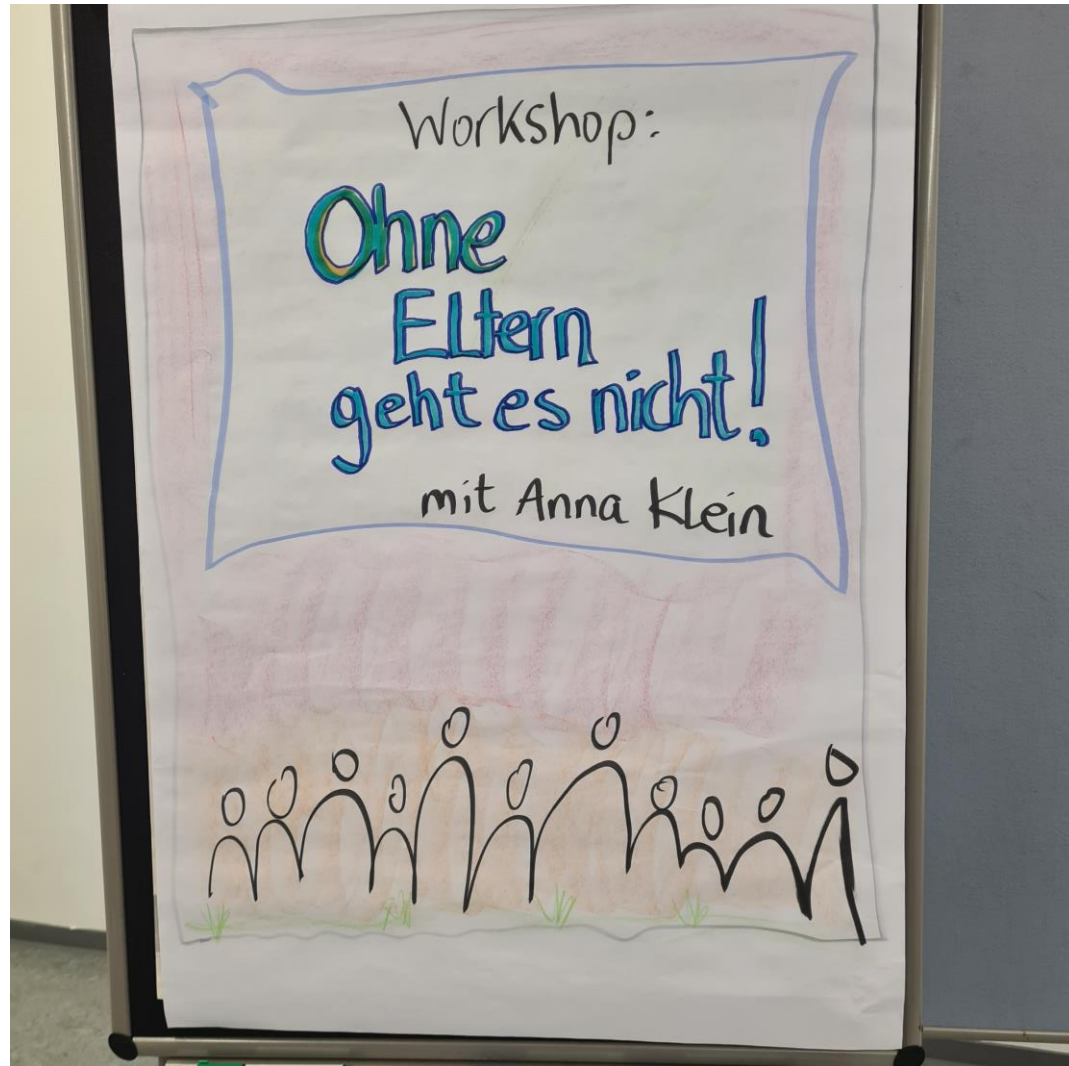 Workshop:
Ohne
Eltern
geht es nicht!
mit Anna Klein